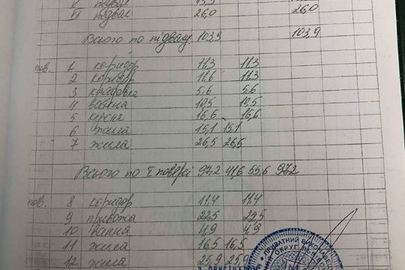 V підвал
VI підвал 26,0 26,0
Всього по підвалу 103,9 103,9
пов. 1 коридор 11,3 11,3
2 коридор 11,6 11,3
3 кладова 5,6 5,6
4 ванна 10,5 10,5
5 кухня 16,6 16,6
6 жила 15,1 15,1
7 жила 26,5 26,5
Всього по I поверсі 97,2 41,6 55,6 97,2
пов. 8 коридор 11,4 11,4
9 22,5 22,5
10 ванна 4,9 4,9
11 жила 16,5 16,5
12 жила 25,9 25,9
ПРИВАТНИЙ